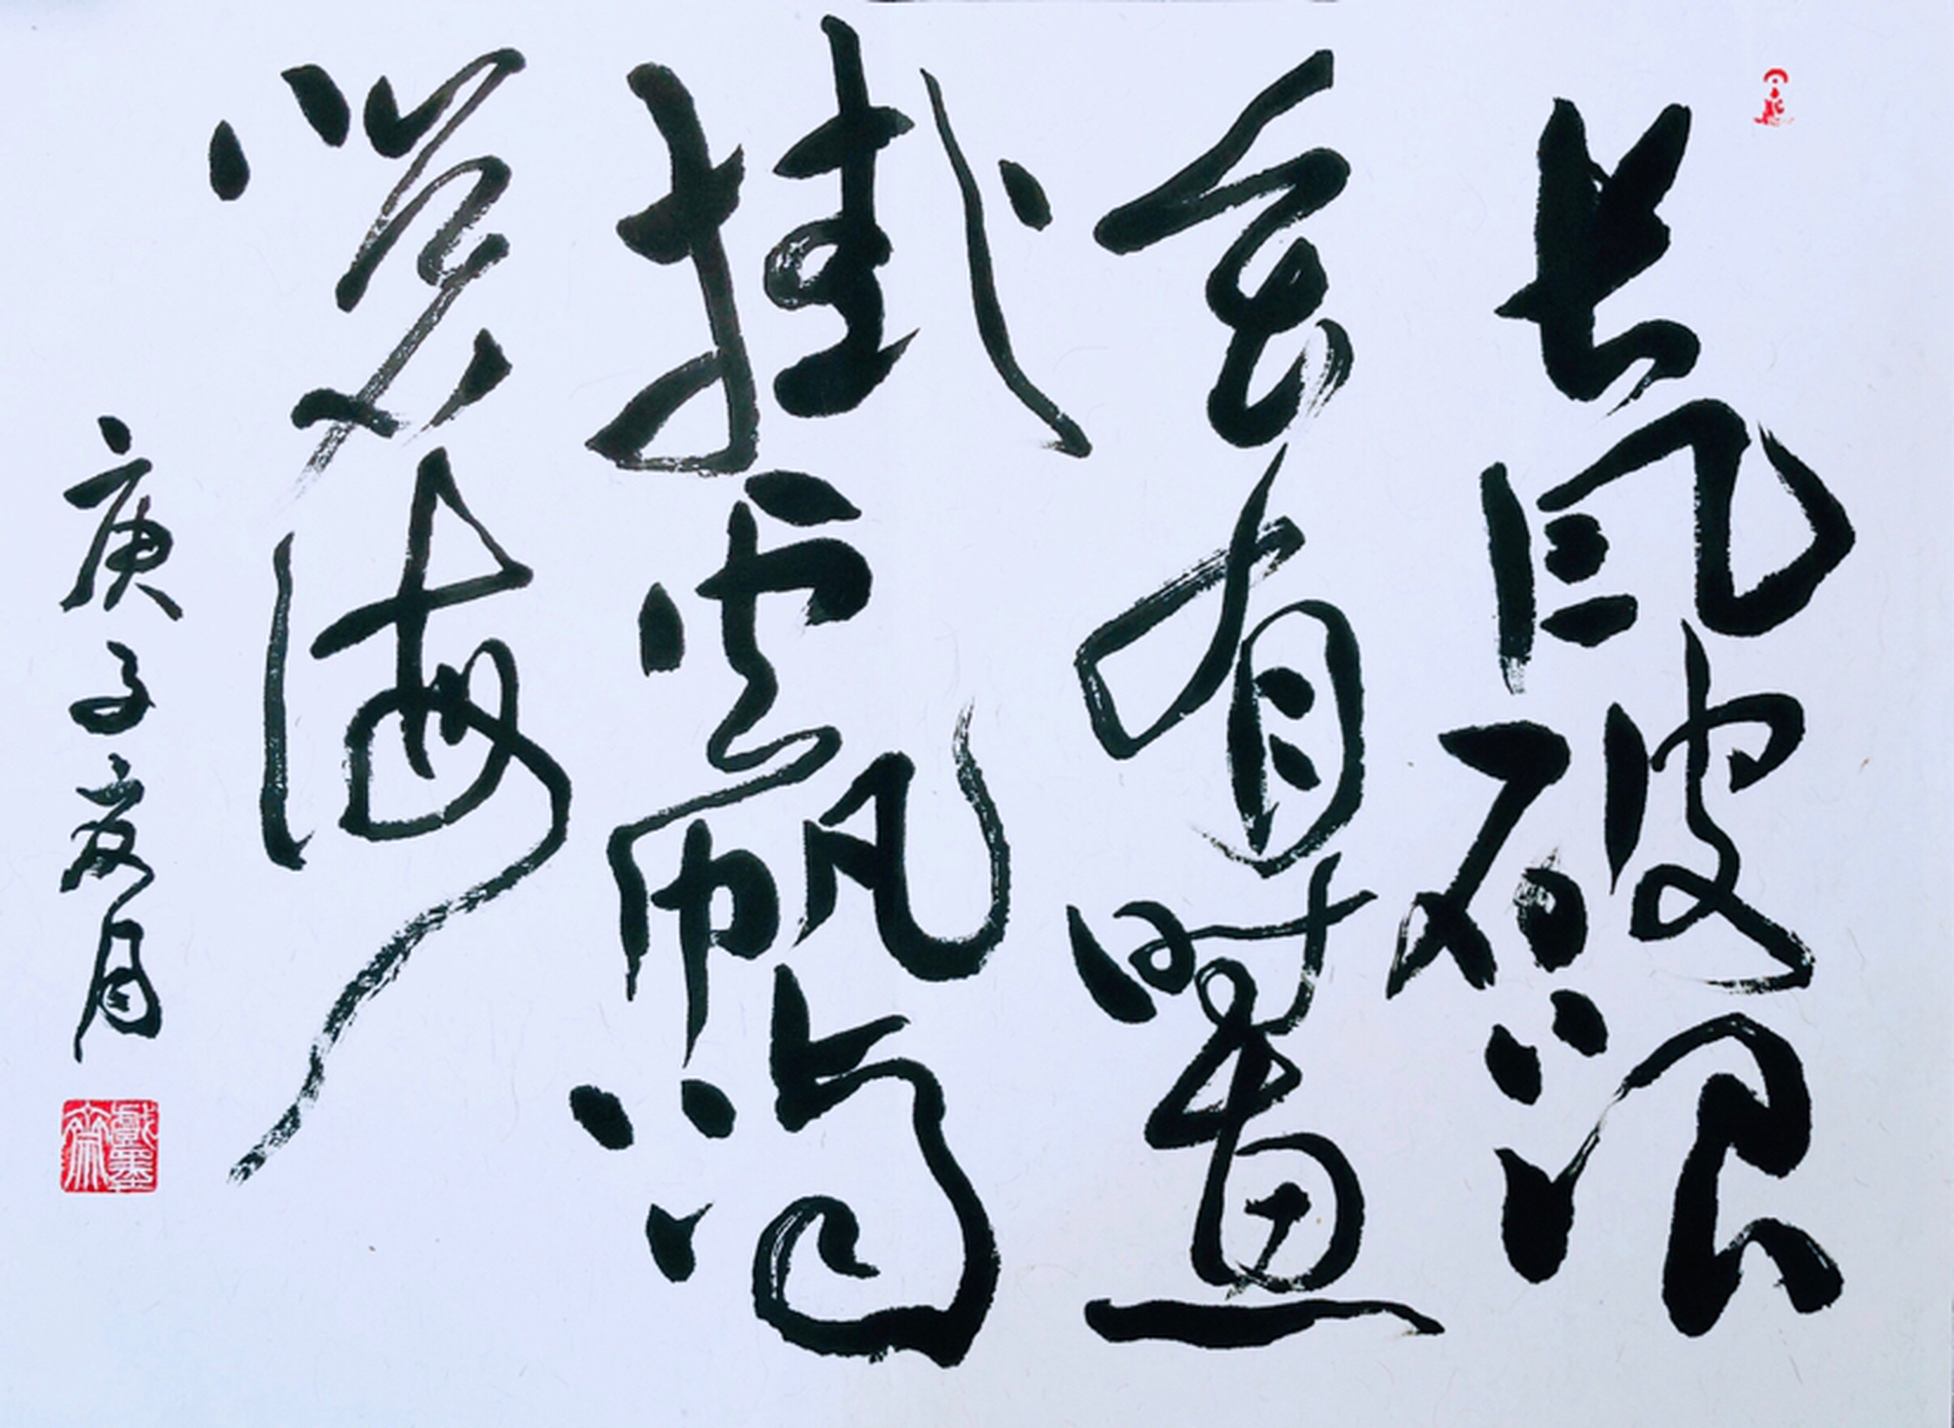 長風破浪
會有時直
掛雲帆濟
滄海
庚子夏月
戲墨齋